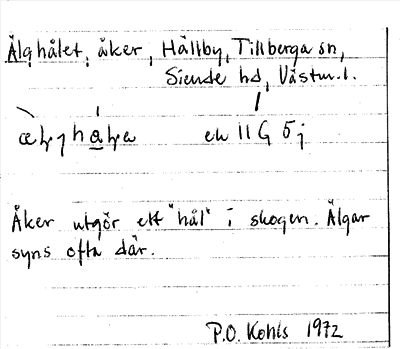 Älghålet, åker, Hällby, Tillberga sn,
Siende hd, Västm.l.
ek 11 G 5 j
Åker utgör ett "hål" i skogen. Älgar
syns ofta där.
P.O. Kohls 1972